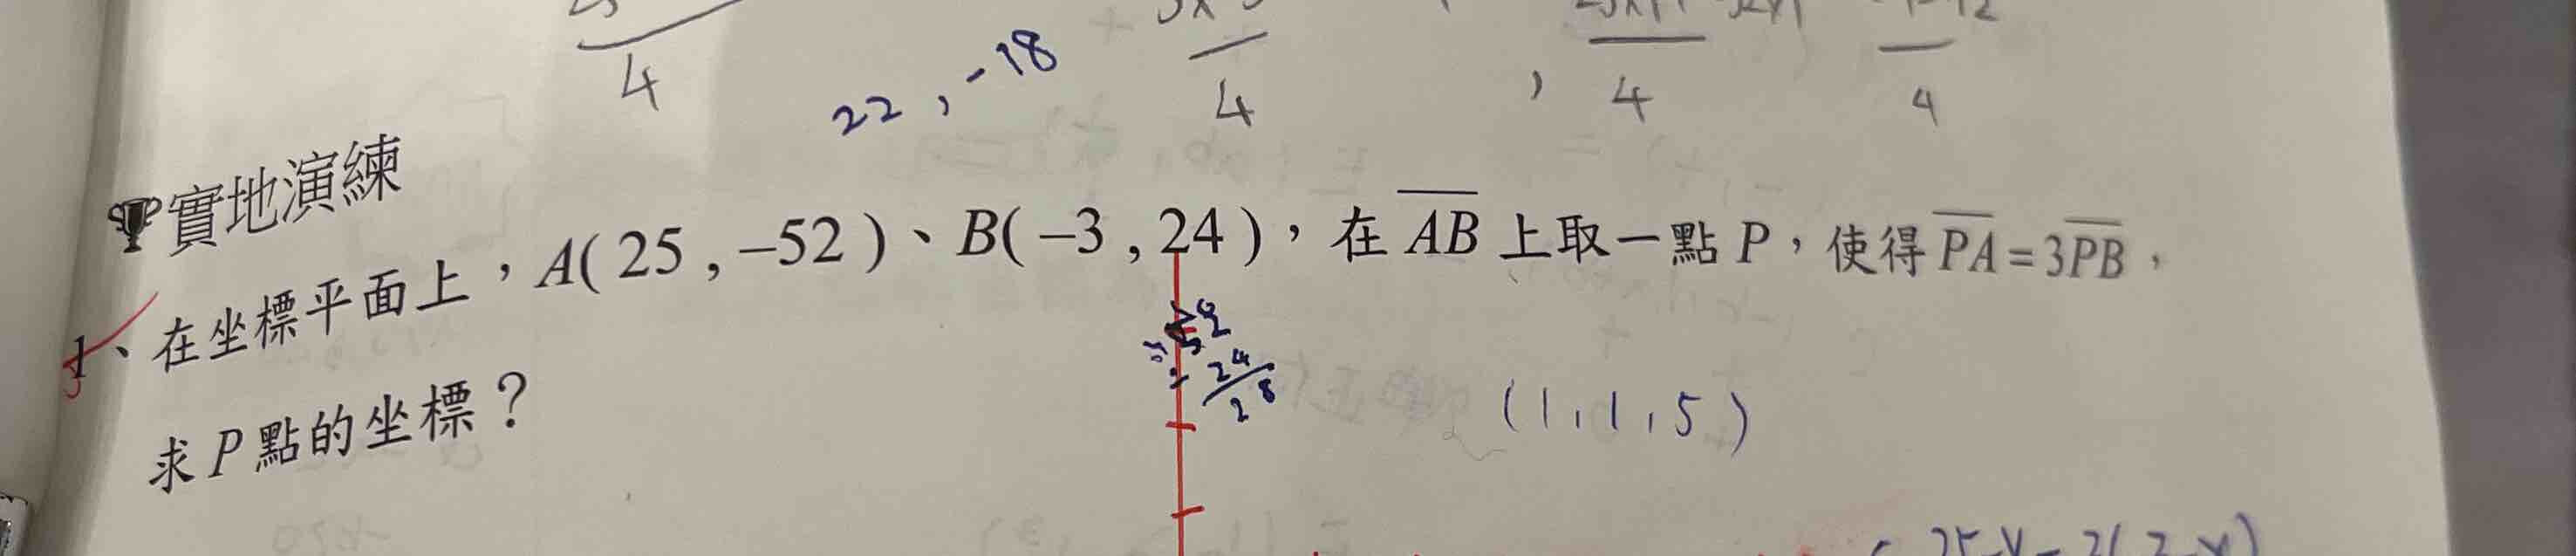 4
22 , -18
4
, 4
4
實地演練
1、在坐標平面上，A( 25 , –52 )、B( –3 , 24 )，在 AB 上取一點 P，使得 PA = 3PB，
求 P 點的坐標？
52
24
28
(1,1,5)